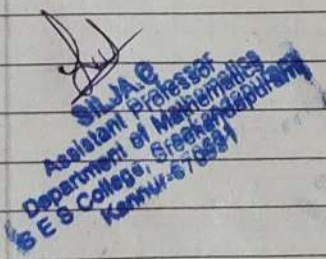 Assistant Professor
Department of Mathematics
S E S College, Sreekandapuram
Kannur-670631